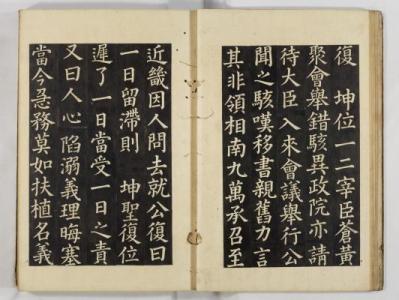 復　坤位一二宰臣蒼黃
聚會舉錯駭異政院亦請
待大臣入來會議舉行公
聞之駭嘆移書親舊力言
其非領相南九萬承召至
近畿因人問去就公復曰
一日留滯則　坤聖復位
遲了一日當受一日之責
又曰人心陷溺義理晦塞
當今急務莫如扶植名義